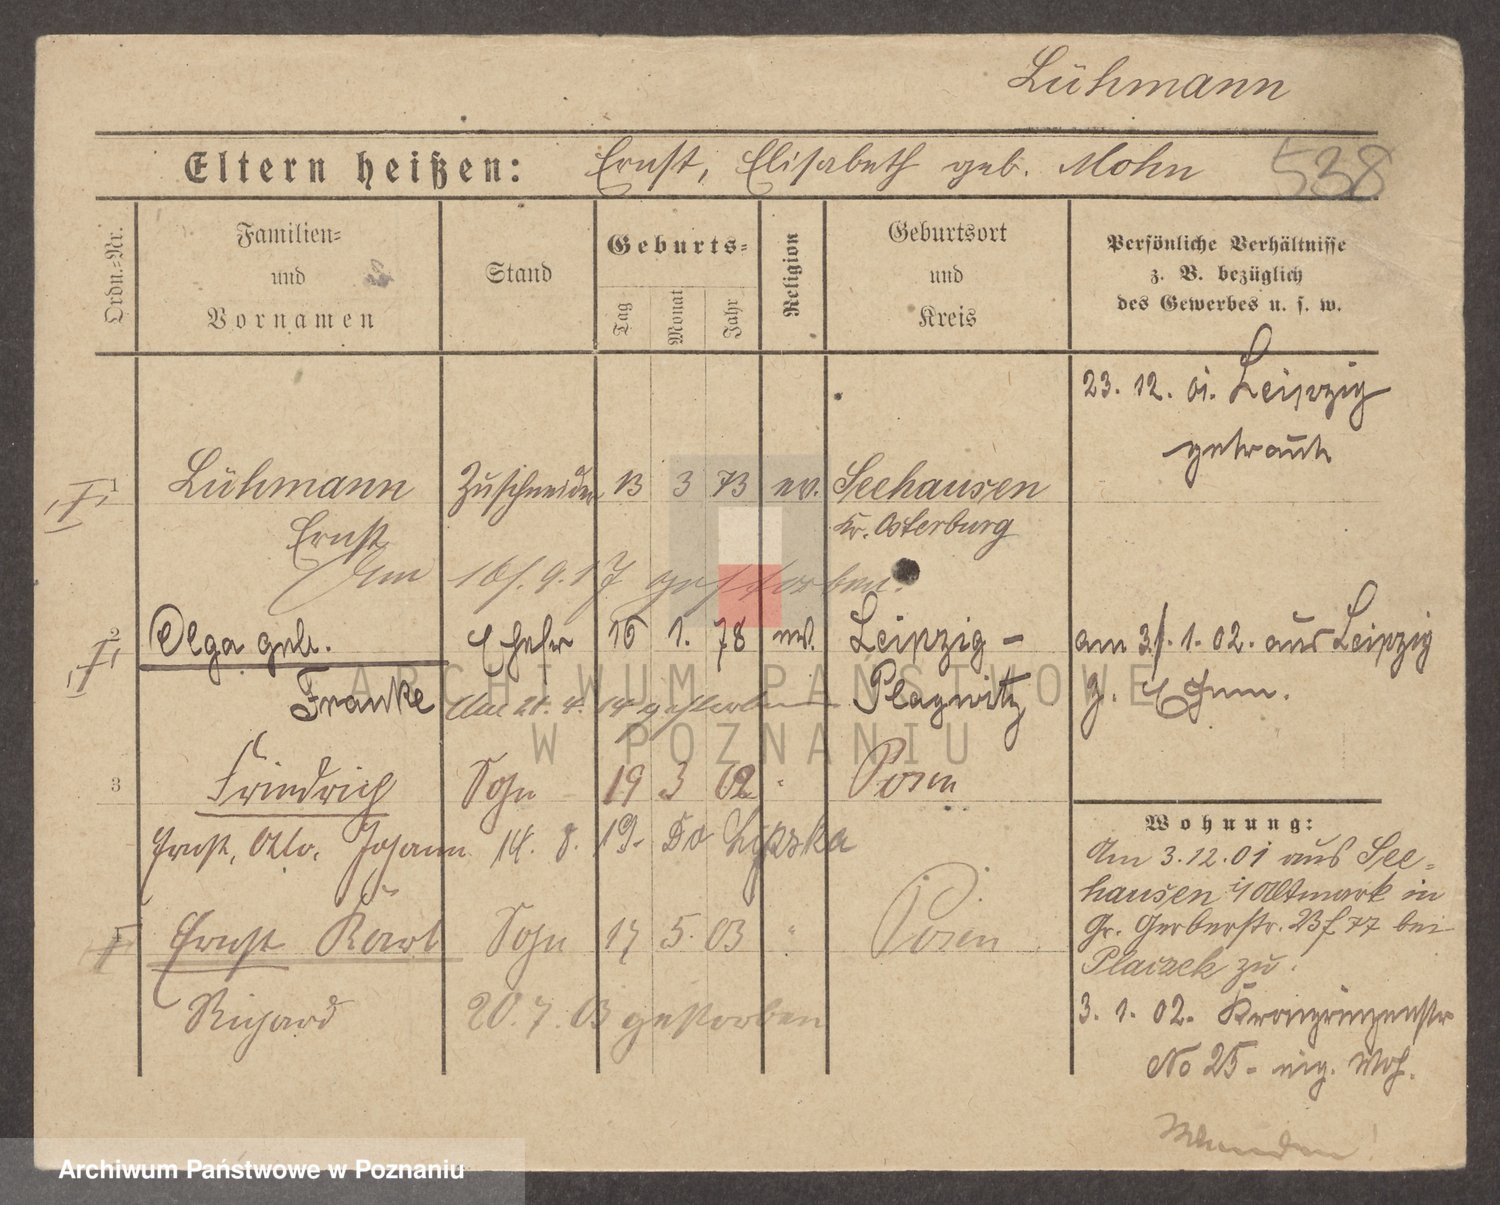 Lühmann
Eltern heißen: Ernst, Elisabeth geb. Mohn 538
Ordn.-Nr.
Familien-
und
Vornamen
Stand
Geburts-
Tag
Monat
Jahr
Religion
Geburtsort
und
Kreis
Persönliche Verhältnisse
z. B. bezüglich
des Gewerbes u. s. w.
23. 12. 01. Leipzig
getraut
1 Lühmann Zuschneider 13 3 73 ev. Seehausen
Ernst Kr. Osterburg
Am 16/.9.17 gestorben.
2 Olga geb. Ehefr 16 1. 78 ev. Leipzig - am 31. 1. 02. aus Leipzig
Franke Am 21. 4. 14 gestorben Plagwitz z. Ehem.
3 Friedrich Sohn 19 3 02 " Posen
Ernst, Otto, Johann 14. 8. 19. Do Lipska
Ernst Karl Sohn 17 5. 03 " Posen
Richard 20. 7. 03 gestorben
Wohnung:
Am 3.12.01 aus See-
hausen i/Altmark in
Gr. Gerberstr. 23 f 77 bei
Placzek zu.
3. 1. 02. Kronprinzenstr
No 25. eig. Woh.
ARCHIWUM PAŃSTWOWE
W POZNANIU
Archiwum Państwowe w Poznaniu